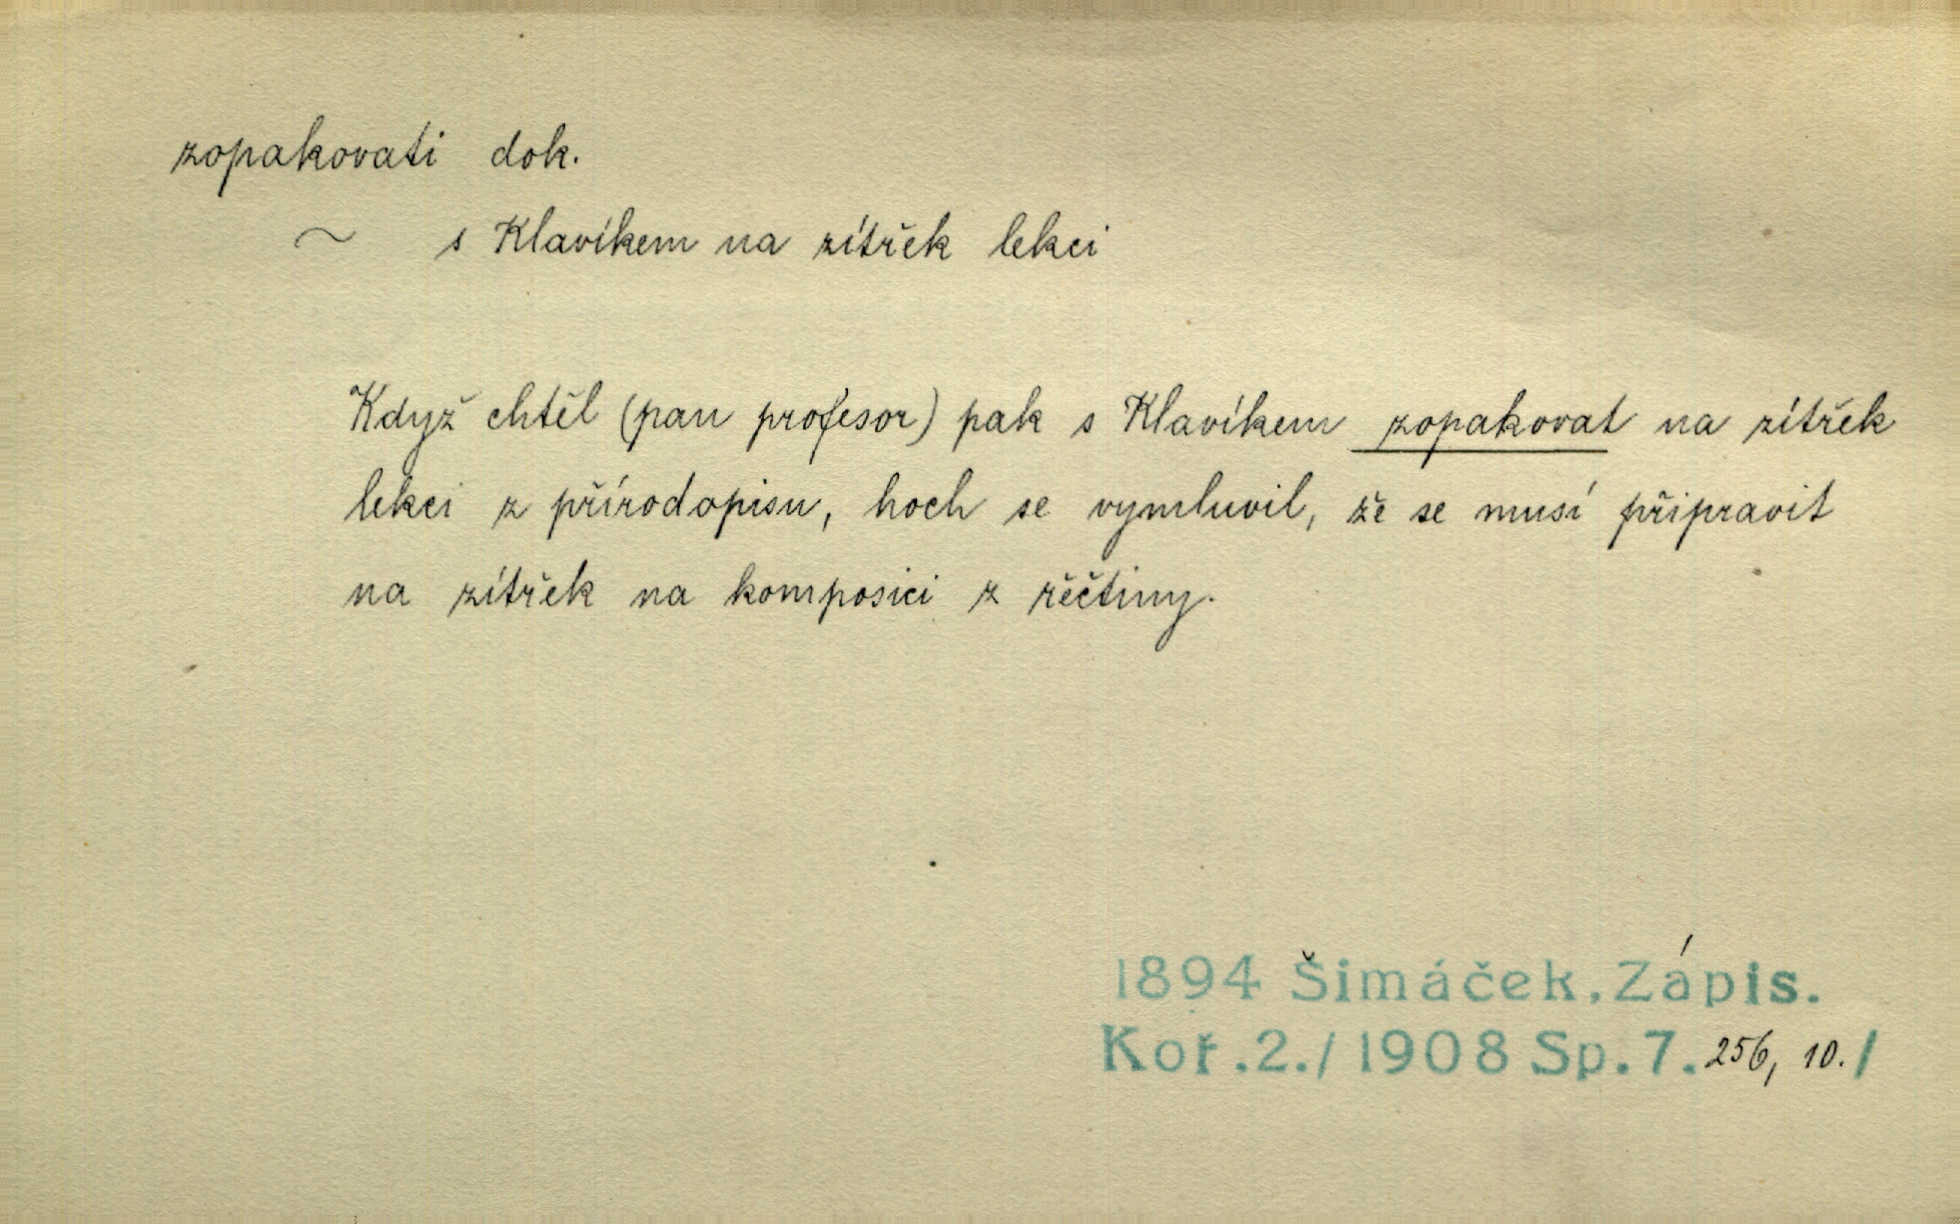 zopakovati dok.
~ s Klavíkem na zítřek lekci
Když chtěl (pan profesor) pak s Klavíkem zopakovat na zítřek
lekci z přírodopisu, hoch se vymluvil, že se musí připravit
na zítřek na komposici z řěčtiny.
1894 Šimáček, Zápis.
Koř.2./1908 Sp.7. 256, 10./